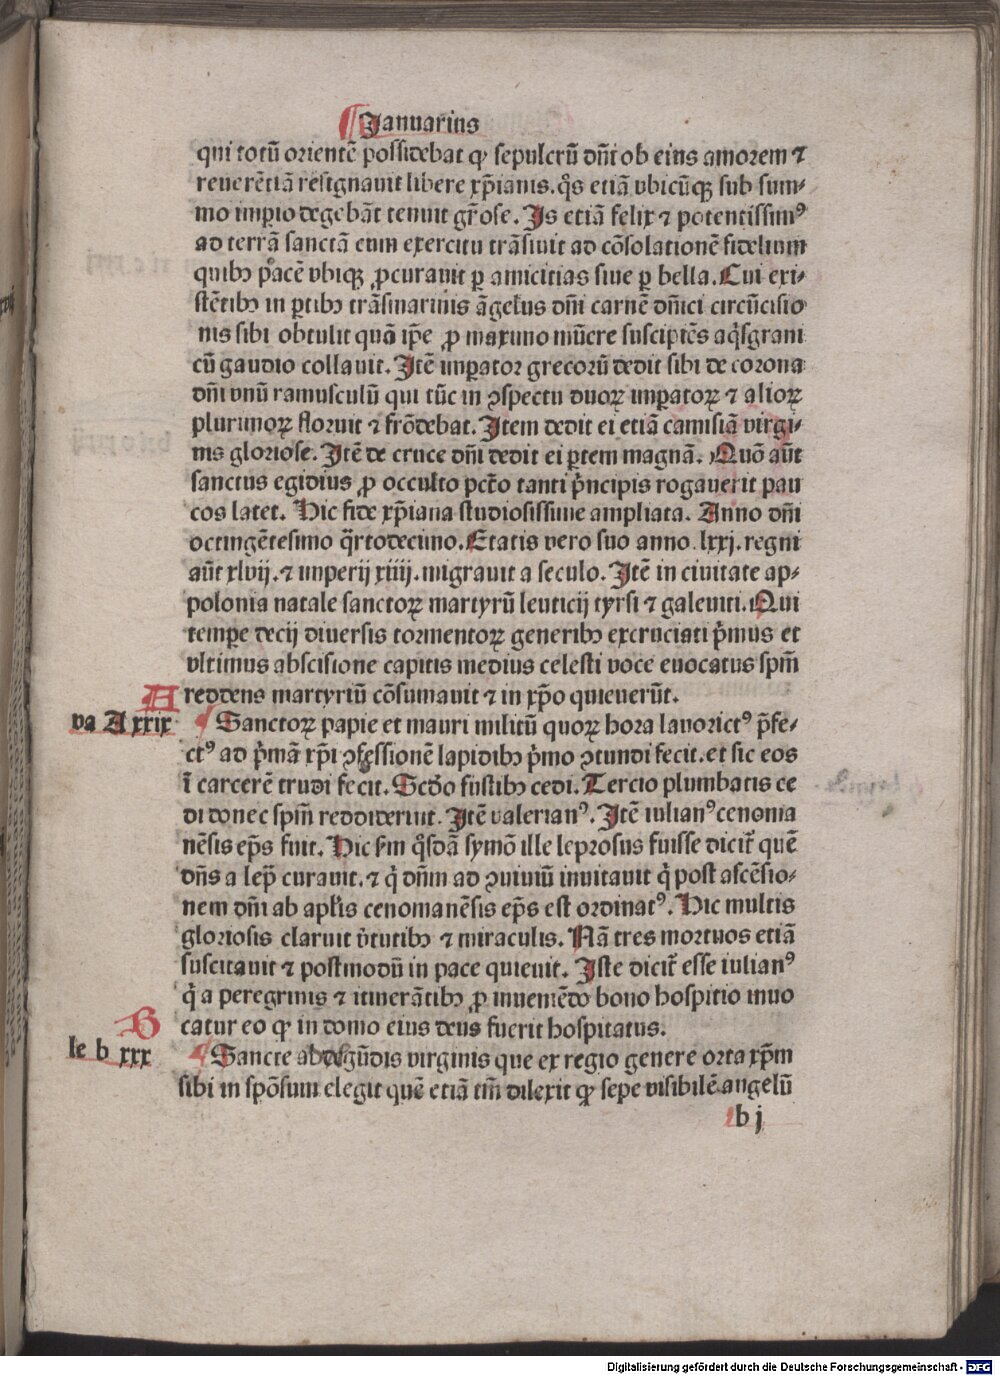 Januarius
qui totū orientē possidebat qꝫ sepulcrū dn̄i ob eius amorem ⁊
reuerētiā resignauit libere xp̄ianis. q̄s etiā vbicūqꝫ sub sum-
mo imꝑio degebāt tenuit gr̄ose. Is etiā felix ⁊ potentissimꝰ
ad terrā sanctā cum exercitu trāsiuit ad cōsolationē fidelium
quibꝫ pacē vbiqꝫ ꝓcurauit ꝑ amicitias siue ꝑ bella. Cui exi-
stētibꝫ in ꝑtibꝫ trāsmarinis āgelus dn̄i carnē dn̄ici circūcisio
nis sibi obtulit quā ip̄e ꝓ maximo mūere suscipiēs aq̄sgrani
cū gaudio collauit. Itē imꝑator grecorū dedit sibi de corona
dn̄i vnū ramusculū qui tūc in ꝯspectu duoꝝ imꝑatoꝝ ⁊ alioꝝ
plurimoꝝ floruit ⁊ frōdebat. Item dedit ei etiā camisiā virgi-
nis gloriose. Itē de cruce dn̄i dedit ei ꝑtem magnā. Quō aūt
sanctus egidius ꝓ occulto pctō tanti p̄ncipis rogauerit pau
cos latet. Hic fide xp̄iana studiosissime ampliata. Anno dn̄i
octingētesimo q̄rtodecimo. Etatis vero suo anno .lxxj. regni
aūt xlvij. ⁊ imperij xiiij. migrauit a seculo. Itē in ciuitate ap-
polonia natale sanctoꝝ martyrū leuticij tyrsi ⁊ galeniti. Qui
tempe decij diuersis tormentoꝝ generibꝫ excruciati p̄mus et
vltimus abscisione capitis medius celesti voce euocatus spm̄
reddens martyriū cōsumauit ⁊ in xp̄o quieuerūt.
A
va A xxix Sanctoꝝ papie et mauri militū quoꝝ hora lauorictꝰ p̄fe-
ctꝰ ad p̄mā xp̄i ꝯfessionē lapidibꝫ p̄mo ꝯtundi fecit. et sic eos
ī carcerē trudi fecit. Scd̄o fustibꝫ cedi. Tercio plumbatis ce
di donec spm̄ reddiderint. Itē valerianꝰ. Itē iulianꝰ cenoma
nēsis ep̄s fuit. Hic fm̄ q̄sdā symō ille leprosus fuisse dicit̄ quē
dn̄s a lep̄ curauit. ⁊ q̄ dn̄m ad ꝯuiuiū inuitauit q̄ post ascēsio-
nem dn̄i ab apl̄is cenomanēsis ep̄s est ordinatꝰ. Hic multis
gloriosis claruit v̄tutibꝫ ⁊ miraculis. Nā tres mortuos etiā
suscitauit ⁊ postmodū in pace quieuit. Iste dicit̄ esse iulianꝰ
q̄ a peregrinis ⁊ itinerātibꝫ ꝓ inueniēdo bono hospitio inuo
catur eo qꝫ in domo eius deus fuerit hospitatus.
B
le b xxx Sancte aldegūdis virginis que ex regio genere orta xp̄m
sibi in spōsum elegit quē etiā tm̄ dilexit qꝫ sepe visibilē angelū
b j
Digitalisierung gefördert durch die Deutsche Forschungsgemeinschaft - DFG